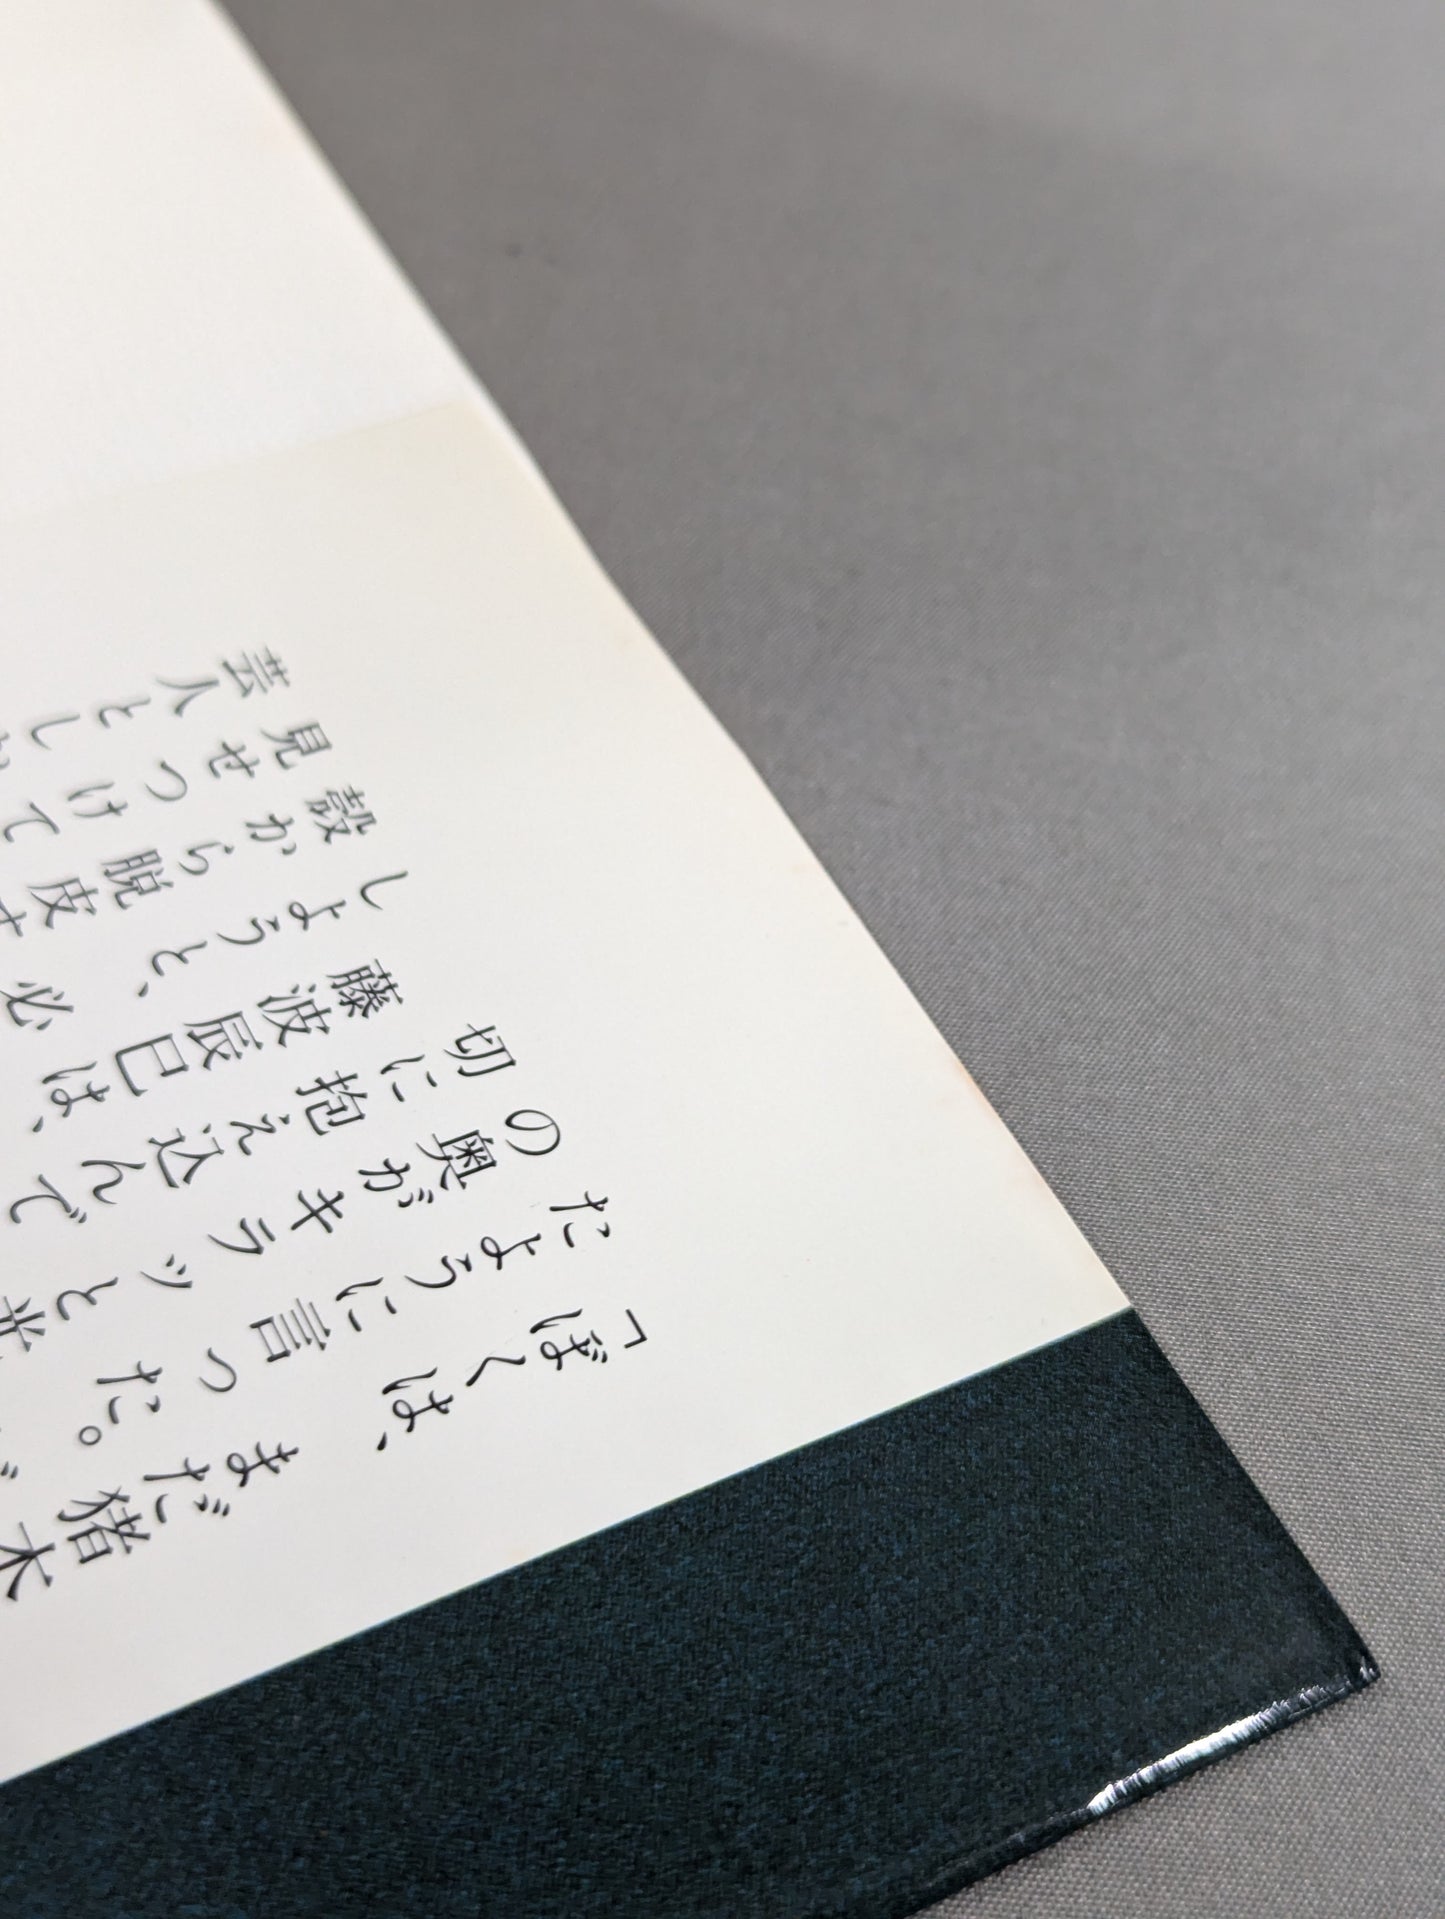 「ぼくは、まだ猪木
たように言った。
の奥がキラッと
切に抱え込んで
藤波辰巳は、
しようと、必
殻から脱皮す
見せつけて
芸人とし